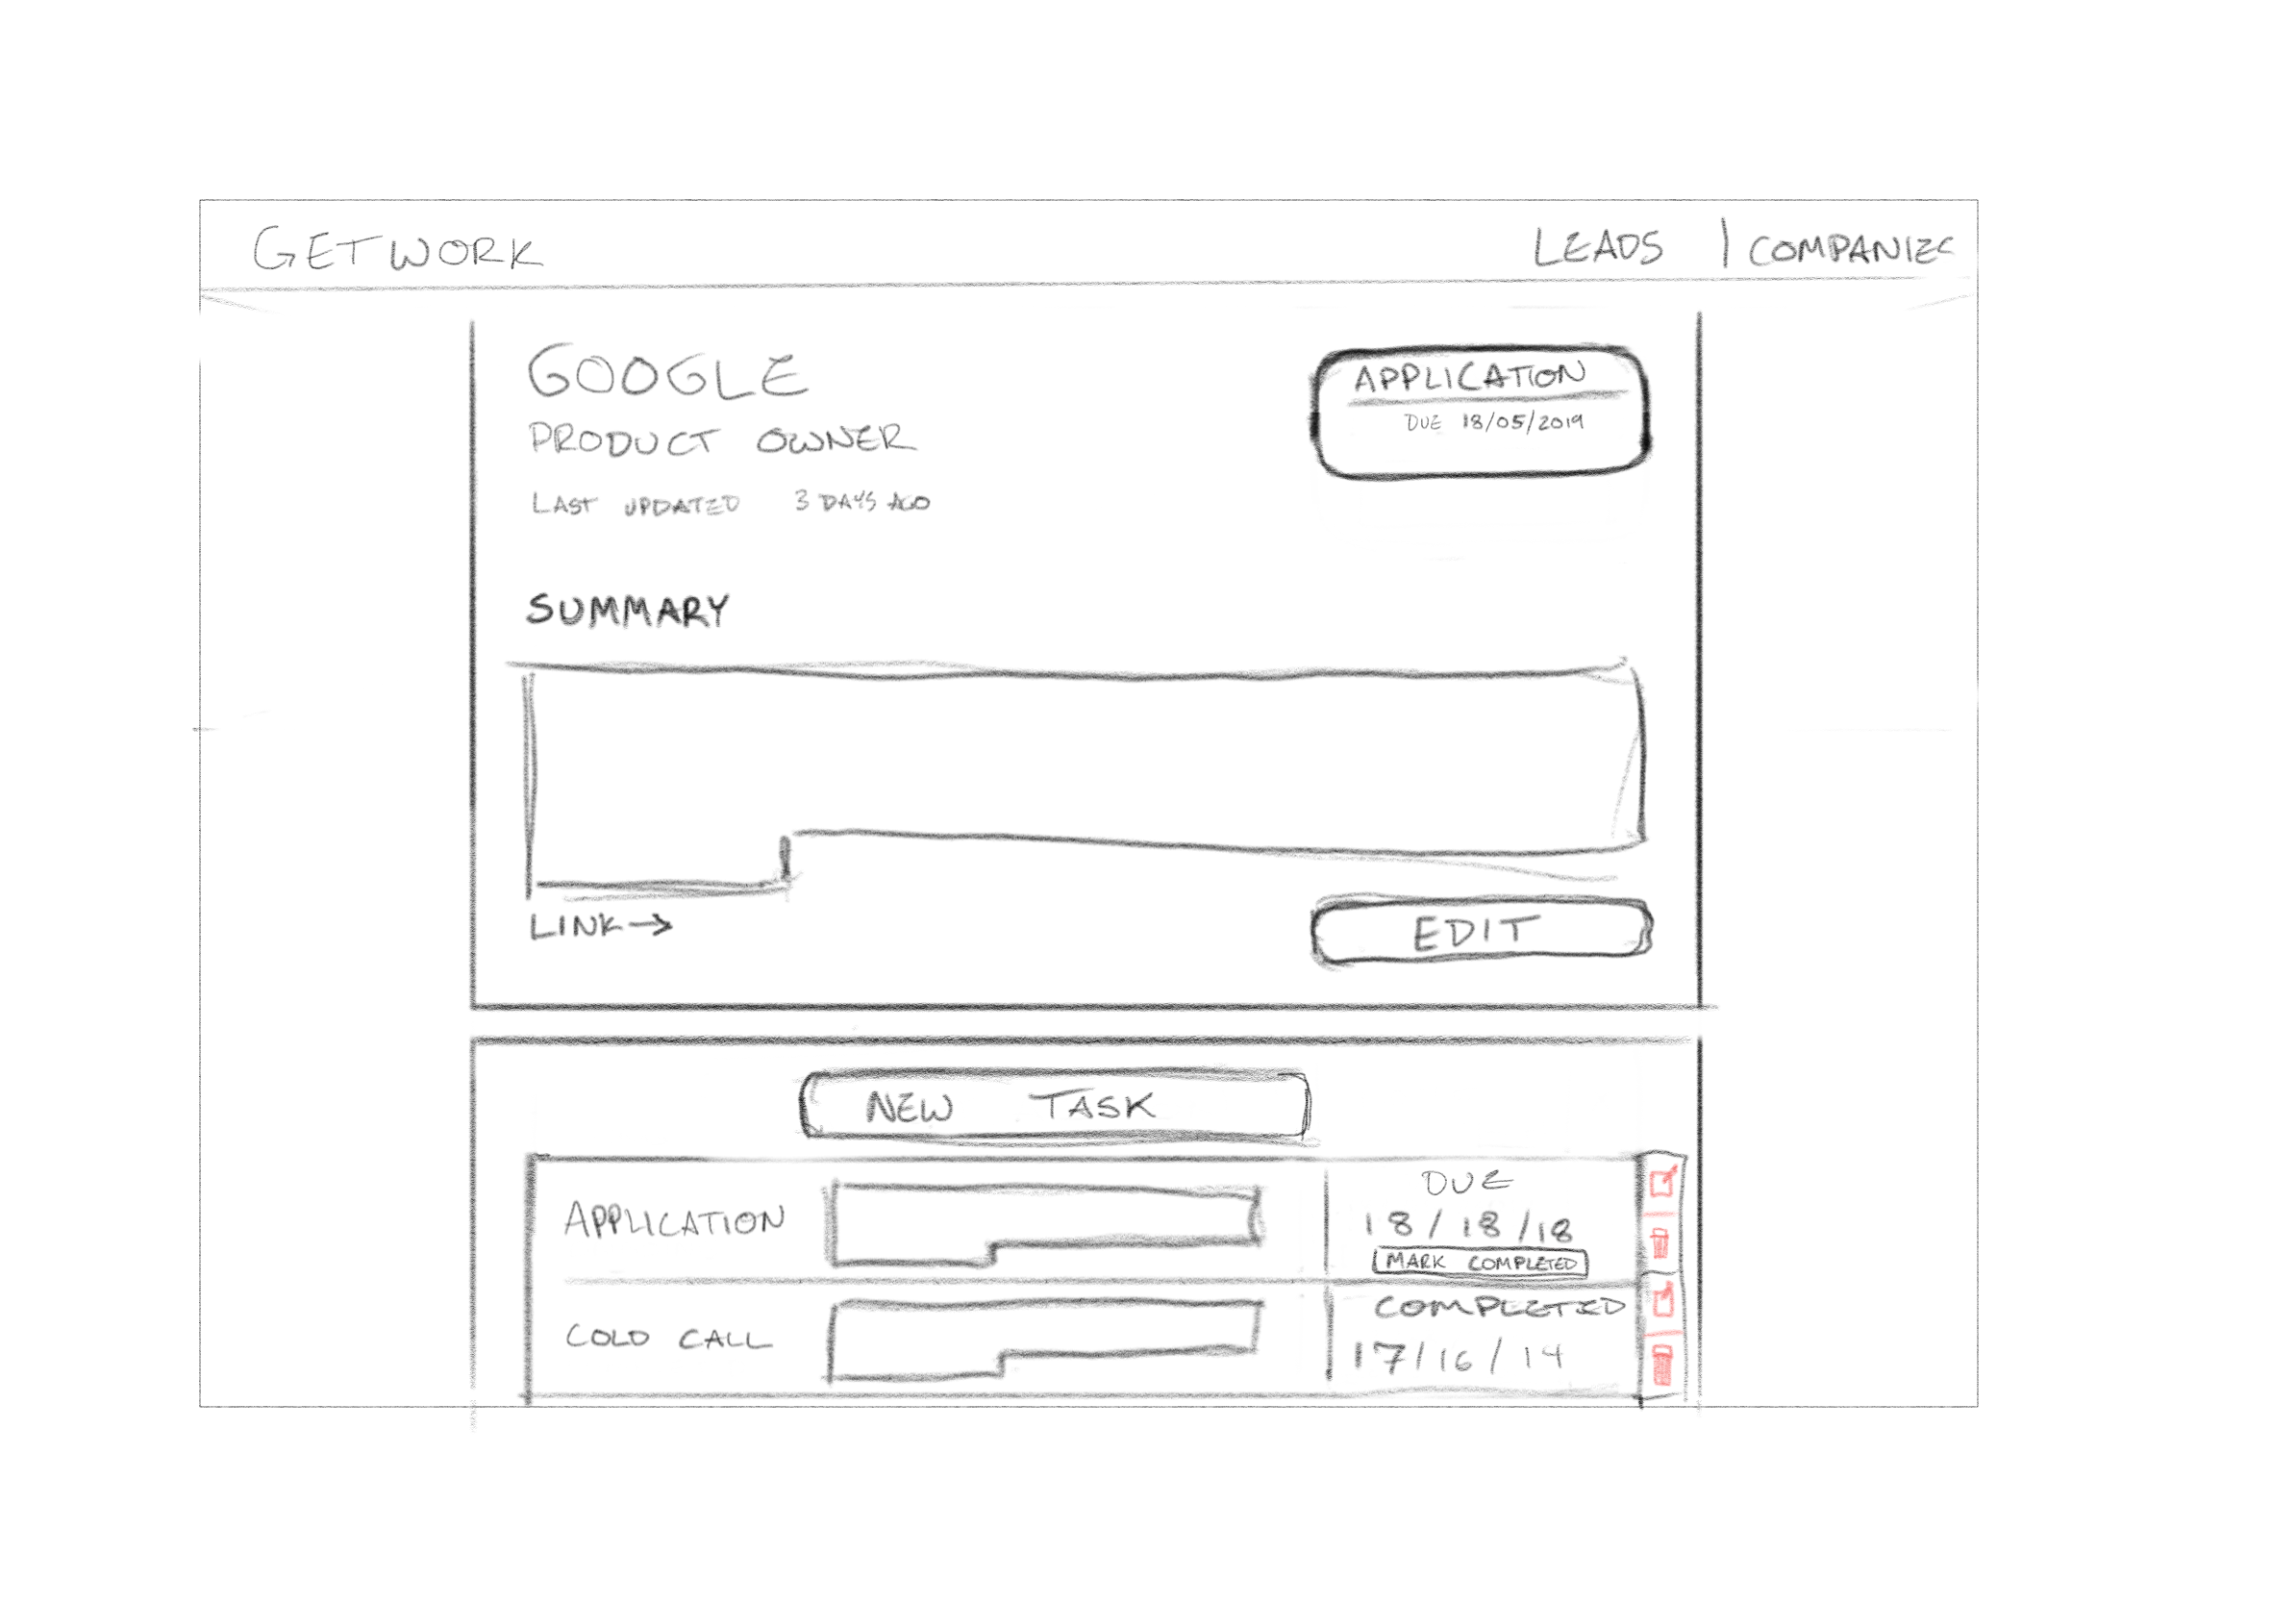 GETWORK
LEADS | COMPANIES
GOOGLE
PRODUCT OWNER
LAST UPDATED 3 DAYS AGO
APPLICATION
DUE 18/05/2019
SUMMARY
LINK →
EDIT
NEW TASK
APPLICATION
DUE
18/18/18
MARK COMPLETED
COLD CALL
COMPLETED
17/16/14